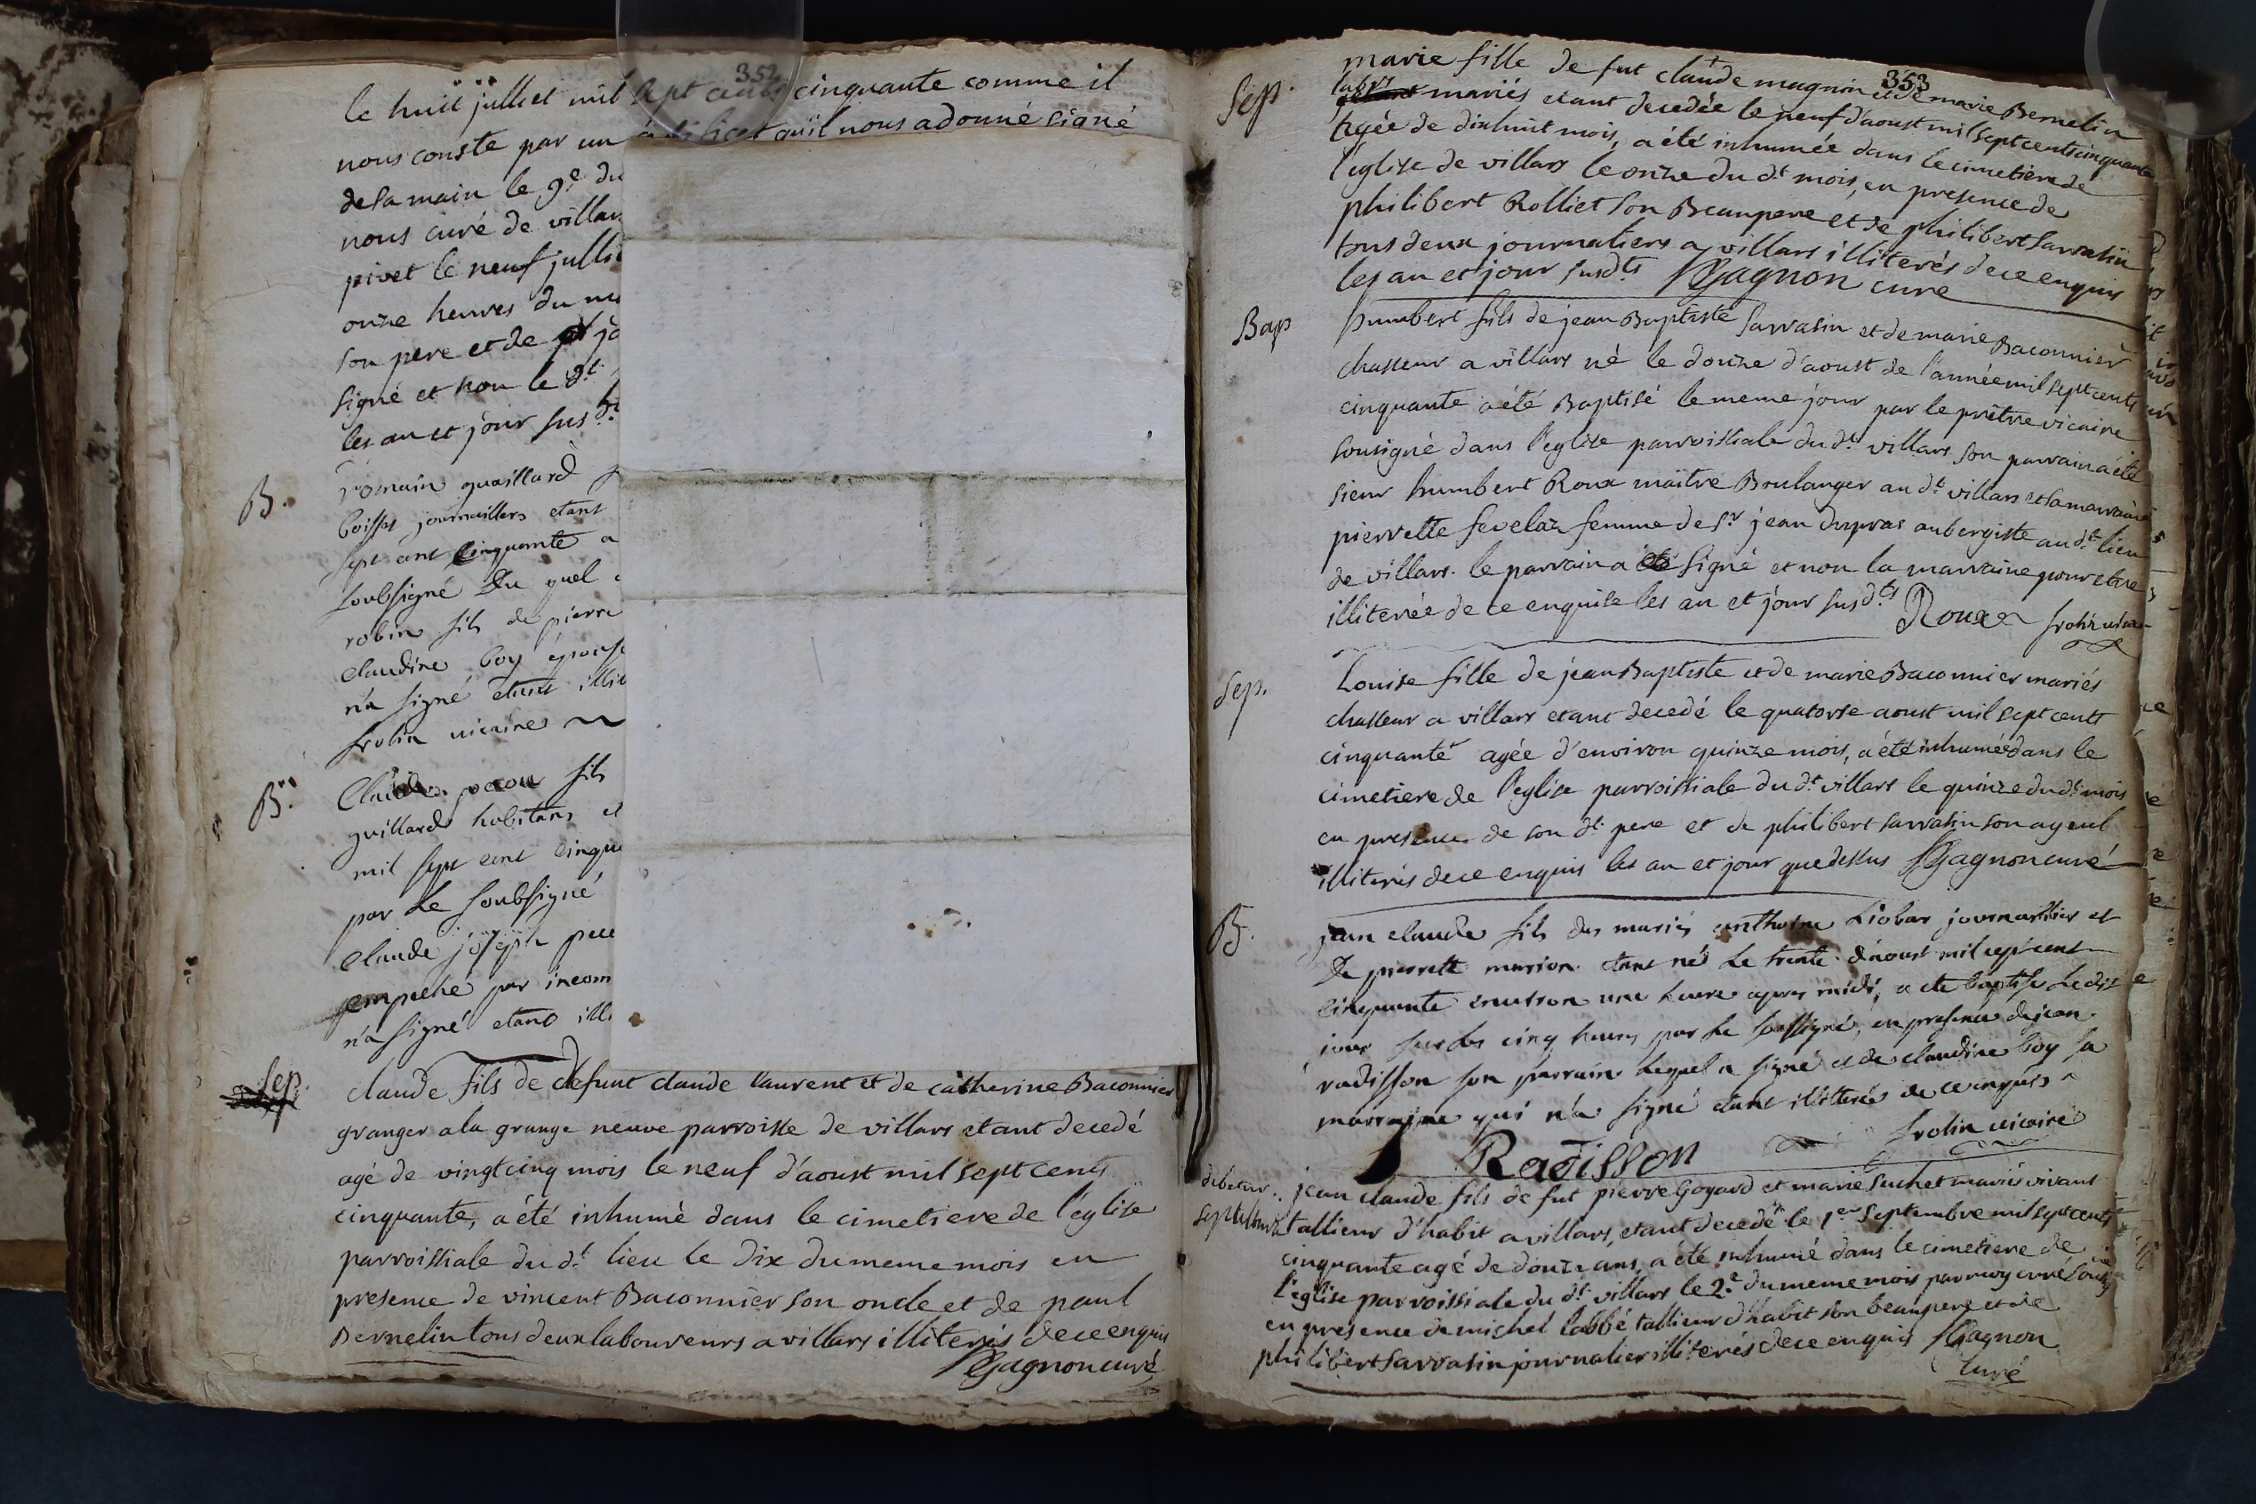 352
le huit julliet mil sept cents cinquante comme il
nous conste par un qu'il nous a donné signé
de sa main le 9e du
nous curé de villar
pivet le neuf julli
onze heures du m
son pere et de
signé et non le dt
les an et jour susdt
B. romain guaillard
boisson journailler etant
sept cent cinquante a
soubsigné Du quel
robin fils de pierre
claudine boy épous
n'a signé etant illit
frolin vicaire
B. Claude pecou fils
guillard habitans et
mil sept cent cinqu
par Le soubsigné
claude joseph pec
empeché par incom
n'a signé etant ill
Sep. claude fils de defunt claude laurent et de catherine Baconnier
granger a la grange neuve parroisse de villars etant decedé
agé de vingt cinq mois le neuf d'aoust mil sept cents
cinquante, a été inhumé dans le cimetiere de l'église
parroissiale du dt lieu le dix du meme mois en
presence de vincent Baconnier son oncle et de paul
Bernelin tous deux laboureurs a villars illiterés de ce enquis
Gagnon curé
353
Sep. marie fille de fut claude magnin et de marie Bernelin
labrs mariés etant decedée le neuf d'aoust mil sept cents cinquante
agée de dixhuit mois, a été inhumée dans le cimetiere de
l'église de villars le onze du dt mois, en presence de
philibert Rolliet son Beaupere et de philibert Sarrasin
tous deux journaliers a villars illiterés de ce enquis
les an et jour susdts Gagnon curé
Bap humbert fils de jean Baptiste Sarrasin et de marie Baconnier
chasseur a villars né le douze d'aoust de l'année mil sept cents
cinquante a été Baptisé le meme jour par le prêtre vicaire
sousigné dans l'eglise parroissiale du dt villars son parrain a été
sieur humbert Roux maître Boulanger au dt villars et sa marraine
pierrette fevelaz femme de sr jean dupras aubergiste au dt lieu
de villars. le parrain a signé et non la marraine pour etre
illiterée de ce enquise les an et jour susdts Roux frolin vicaire
Sep. Louise fille de jean Baptiste et de marie Baconnier mariés
chasseur a villars etant decedé le quatorse aoust mil sept cents
cinquante agée d'environ quinze mois, a été inhumée dans le
cimetiere de l'église parroissiale du dt villars le quinze du dt mois
en presence de son dt pere et de philibert sarrasin son ayeul
illiterés de ce enquis les an et jour que dessus Gagnon curé
B. jean claude fils des mariés anthoine Liobar journaillier et
De pierrette marion etant né Le trente d'aoust mil sept cent
cinquante environ une heure apres midi, a eté baptisé Le dit
jour sur les cinq heures par Le soussigné, en presence de jean
radisson son parrain Lequel a signé et de claudine boy sa
marraine qui n'a signé etant illitterée de ce enquis
frolin vicaire
Radisson
septembre jean claude fils de fut pierre Goyard et marie Suchet mariés vivant
tallieur d'habit a villars, etant decedé le 1er septembre mil sept cents
cinquante agé de douze ans, a été inhumé dans le cimetiere de
l'église parroissiale du dt villars le 2e du meme mois par moy curé sousigné
en presence de michel labbé tallieur d'habit son beaupere et de
philibert sarrasin journalier illiterés de ce enquis Gagnon
curé